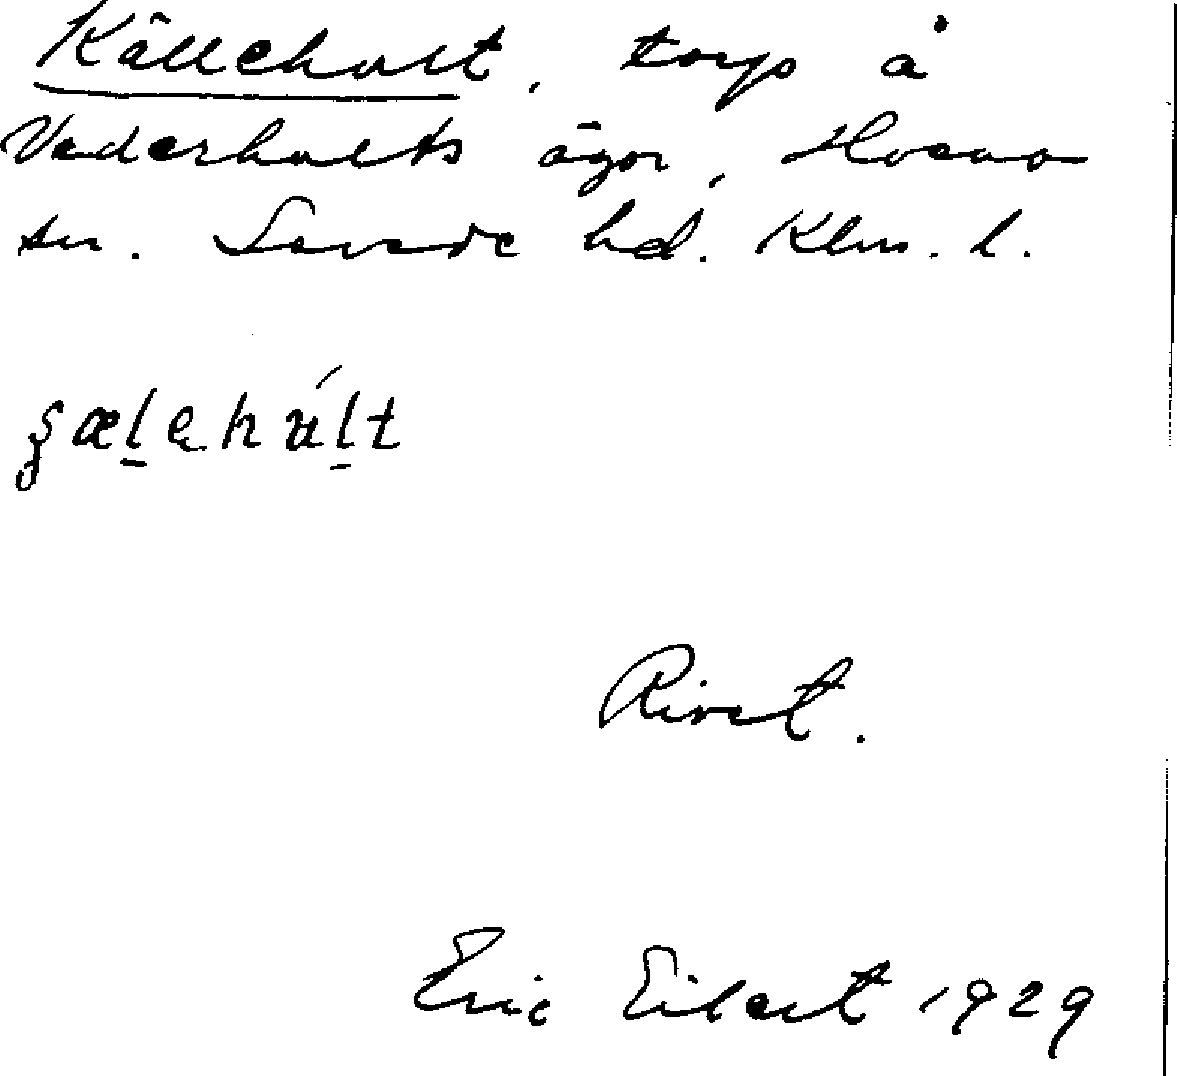 Källehult, torp å
Vederhults ägor,
sn. Sevede hd. Klm. l.
Rivet.
Eric Eilert 1929